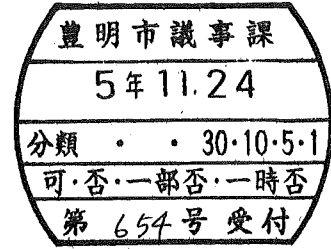 豊明市議事課
5年11.24
分類 ・ ・ 30・10・5・1
可・否・一部否・一時否
第 654 号 受付